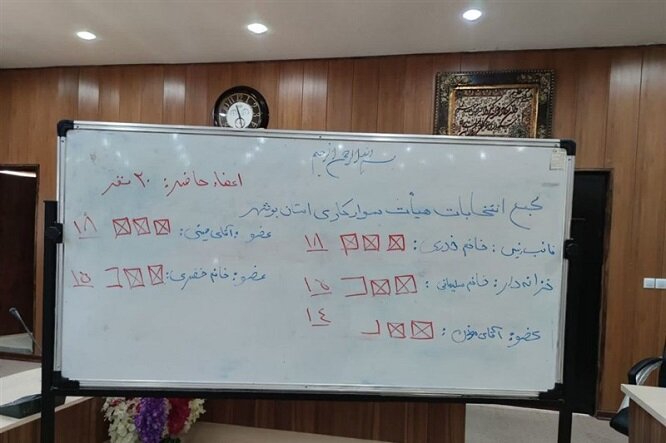 بسم الله الرحمن الرحیم
اعضاء حاضر: ۲۰ نفر
مجمع انتخابات هیأت سوارکاری استان بوشهر
نائب رئیس: خانم خدری: ۱۸
خزانه دار: خانم سلیمانی: ۱۵
عضو: آقای : ۱۴
عضو: آقای : ۱۸
عضو: خانم خضری: ۱۵